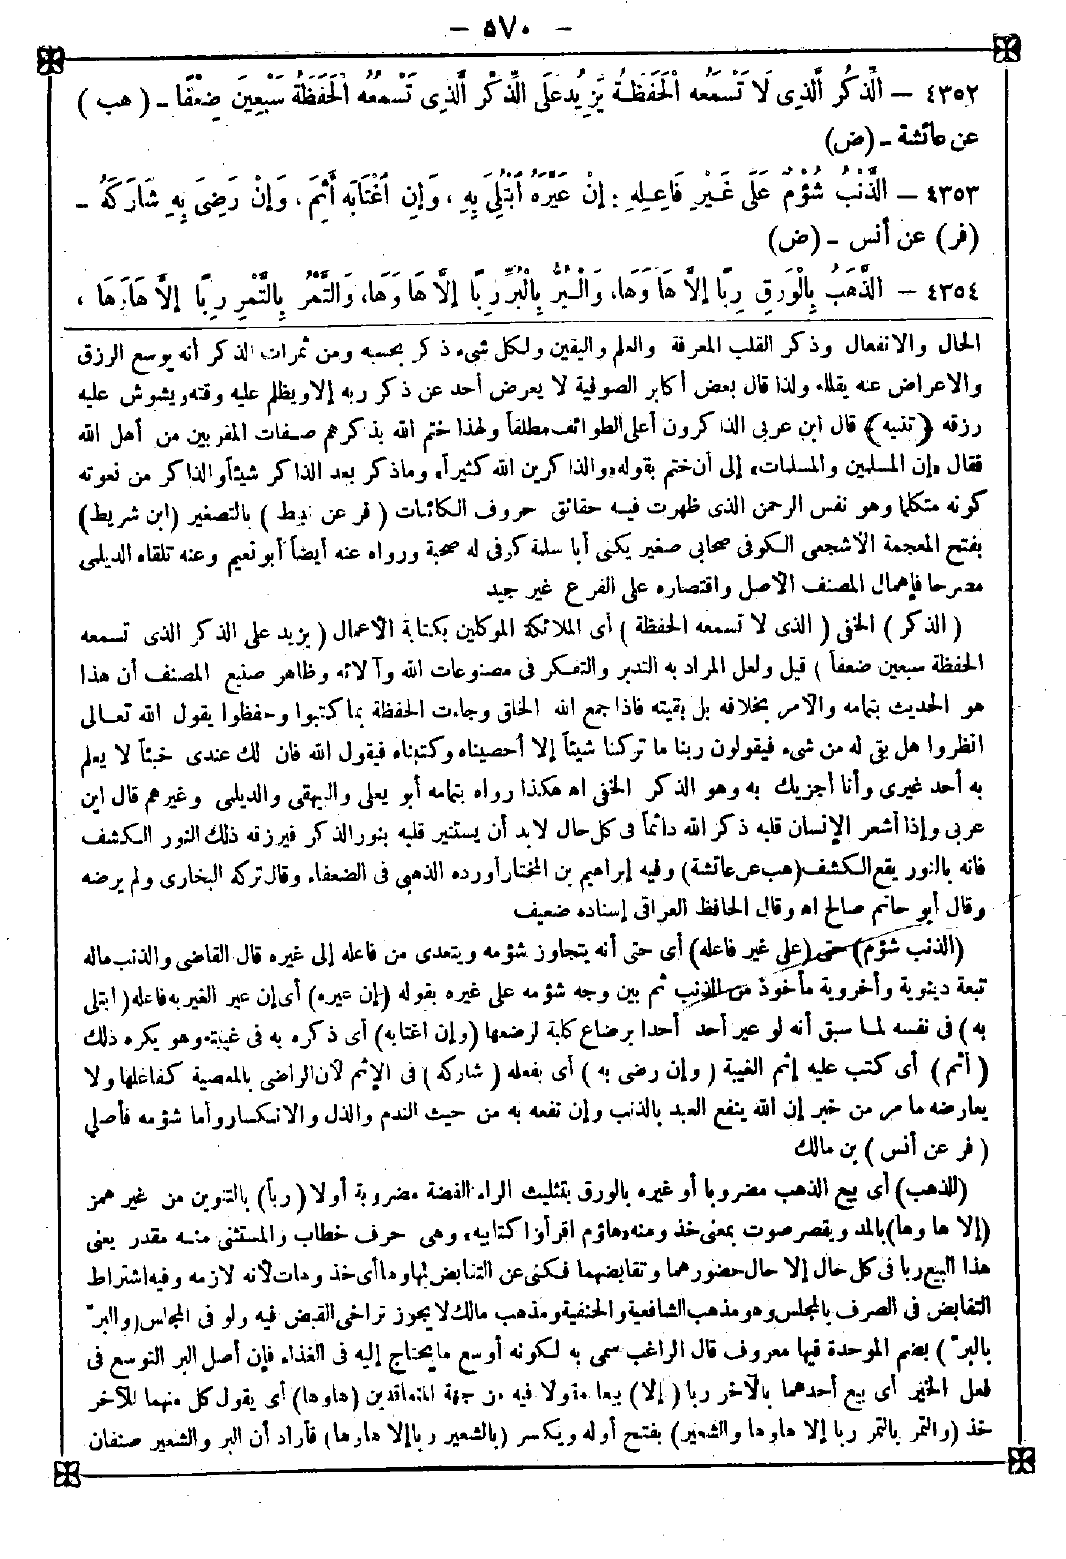 - ٥٧٠ -
٤٣٥٢ - الذِّكْرُ الَّذِى لَا تَسْمَعُه الْحَفَظَةُ يَزِيدُ عَلَى الذِّكْرِ الَّذِى تَسْمَعُهُ الْحَفَظَةُ سَبْعِينَ ضِعْفًا - (هب)
عن عائشة - (ض)
٤٣٥٣ - الذَّنْبُ شُؤْمٌ عَلَى غَيْرِ فَاعِلِهِ : إِنْ عَيَّرَهُ ابْتُلِىَ بِهِ ، وَإِنِ اغْتَابَه أَثِمَ، وَإِنْ رَضِىَ بِهِ شَارَكَهُ -
(فر) عن أنس - (ض)
٤٣٥٤ - الذَّهَبُ بِالْوَرِقِ رِبًا إِلَّا هَا وَهَا، وَالْبُرُّ بِالْبُرِّ رِبًا إِلَّا هَا وَهَا، وَالتَّمْرُ بِالتَّمْرِ رِبًا إِلَّا هَا وَهَا ،
الحال والانفعال وذكر القلب المعرفة والعلم واليقين ولكل شىء ذكر بحسبه ومن ثمرات الذكر أنه يوسع الرزق
والاعراض عنه يقلله ولذا قال بعض أكابر الصوفية لا يعرض أحد عن ذكر ربه إلا ويظلم عليه وقته ويشوش عليه
رزقه (تنبيه) قال ابن عربى الذاكرون أعلى الطوائف مطلقاً ولهذا ختم الله بذكرهم صفات المقربين من أهل الله
فقال «إن المسلمين والمسلمات» إلى أن ختم بقوله «والذاكرين الله كثيراً» وما ذكر بعد الذاكر شيئاً والذاكر من نعوته
كونه متكلما وهو نفس الرحمن الذى ظهرت فيه حقائق حروف الكائنات ( فر عن نبيط ) بالتصغير (ابن شريط)
بفتح المعجمة الأشجعى الكوفى صحابى صغير يكنى أبا سلمة كوفى له صحبة ورواه عنه أيضاً أبو نعيم وعنه تلقاه الديلمى
مصرحا فإهمال المصنف الأصل واقتصاره على الفرع غير جيد
( الذكر ) الخفى ( الذى لا تسمعه الحفظة ) أى الملائكة الموكلين بكتابة الأعمال ( يزيد على الذكر الذى تسمعه
الحفظة سبعين ضعفاً ) قيل ولعل المراد به التدبر والتفكر فى مصنوعات الله وآلائه وظاهر صنيع المصنف أن هذا
هو الحديث بتمامه والأمر بخلافه بل بقيته فاذا جمع الله الخلق وجاءت الحفظة بما كتبوا وحفظوا يقول الله تعالى
انظروا هل بقى له من شىء فيقولون ربنا ما تركنا شيئاً إلا أحصيناه وكتبناه فيقول الله فان لك عندى خبئاً لا يعلم
به أحد غيرى وأنا أجزيك به وهو الذكر الخفى اه هكذا رواه بتمامه أبو يعلى والبيهقى والديلمى وغيرهم قال ابن
عربى وإذا أشعر الإنسان قلبه ذكر الله دائماً فى كل حال لابد أن يستنير قلبه بنور الذكر فيرزقه ذلك النور الكشف
فانه بالنور يقع الكشف (هب عن عائشة) وفيه إبراهيم بن المختار أورده الذهبى فى الضعفاء وقال تركه البخارى ولم يرضه
وقال أبو حاتم صالح اه وقال الحافظ العراقى إسناده ضعيف
(الذنب شؤم) حتى (على غير فاعله) أى حتى أنه يتجاوز شؤمه ويتعدى من فاعله إلى غيره قال القاضى والذنب ماله
تبعة دينوية وأخروية مأخوذ من الذنب ثم بين وجه شؤمه على غيره بقوله (إن عيره) أى إن عير الغير به فاعله ( ابتلى
به ) فى نفسه لما سبق أنه لو عير أحد أحدا برضاع كلبة لرضعها (وإن اغتابه) أى ذكره به فى غيبته وهو يكره ذلك
( أثم ) أى كتب عليه إثم الغيبة ( وإن رضى به ) أى بفعله ( شاركه ) فى الإثم لأن الراضى بالمعصية كفاعلها ولا
يعارضه ما مر من خبر إن الله ينفع العبد بالذنب وإن نفعه به من حيث الندم والذل والانكسار وأما شؤمه فأصلى
( فر عن أنس ) بن مالك
(الذهب) أى بيع الذهب مضروبا أو غيره بالورق بتثليث الراء الفضة مضروبة أولا (رباً) بالتنوين من غير همز
(إلا ها وها) بالمد ويقصر صوت بمعنى خذ ومنه «هاؤم اقرأوا كتابيه» وهى حرف خطاب والمستثنى منه مقدر يعنى
هذا البيع ربا فى كل حال إلا حال حضورهما وتقابضهما فكنى عن التقابض بها وها أى خذ وهات لأنه لازمه وفيه اشتراط
التقابض فى الصرف بالمجلس وهو مذهب الشافعية والحنفية ومذهب مالك لا يجوز تراخى القبض فيه ولو فى المجلس (والبرّ
بالبرّ ) بضم الموحدة فيها معروف قال الراغب سمى به لكونه أوسع ما يحتاج إليه فى الغذاء فإن أصل البر التوسع فى
فعل الخير أى بيع أحدهما بالآخر ربا ( إلا ) بيعا مقولا فيه من جهة المتعاقدين (هاوها) أى يقول كل منهما للآخر
خذ (والتمر بالتمر ربا إلا هاوها والشعير) بفتح أوله ويكسر (بالشعير ربا إلا هاوها) فأراد أن البر والشعير صنفان